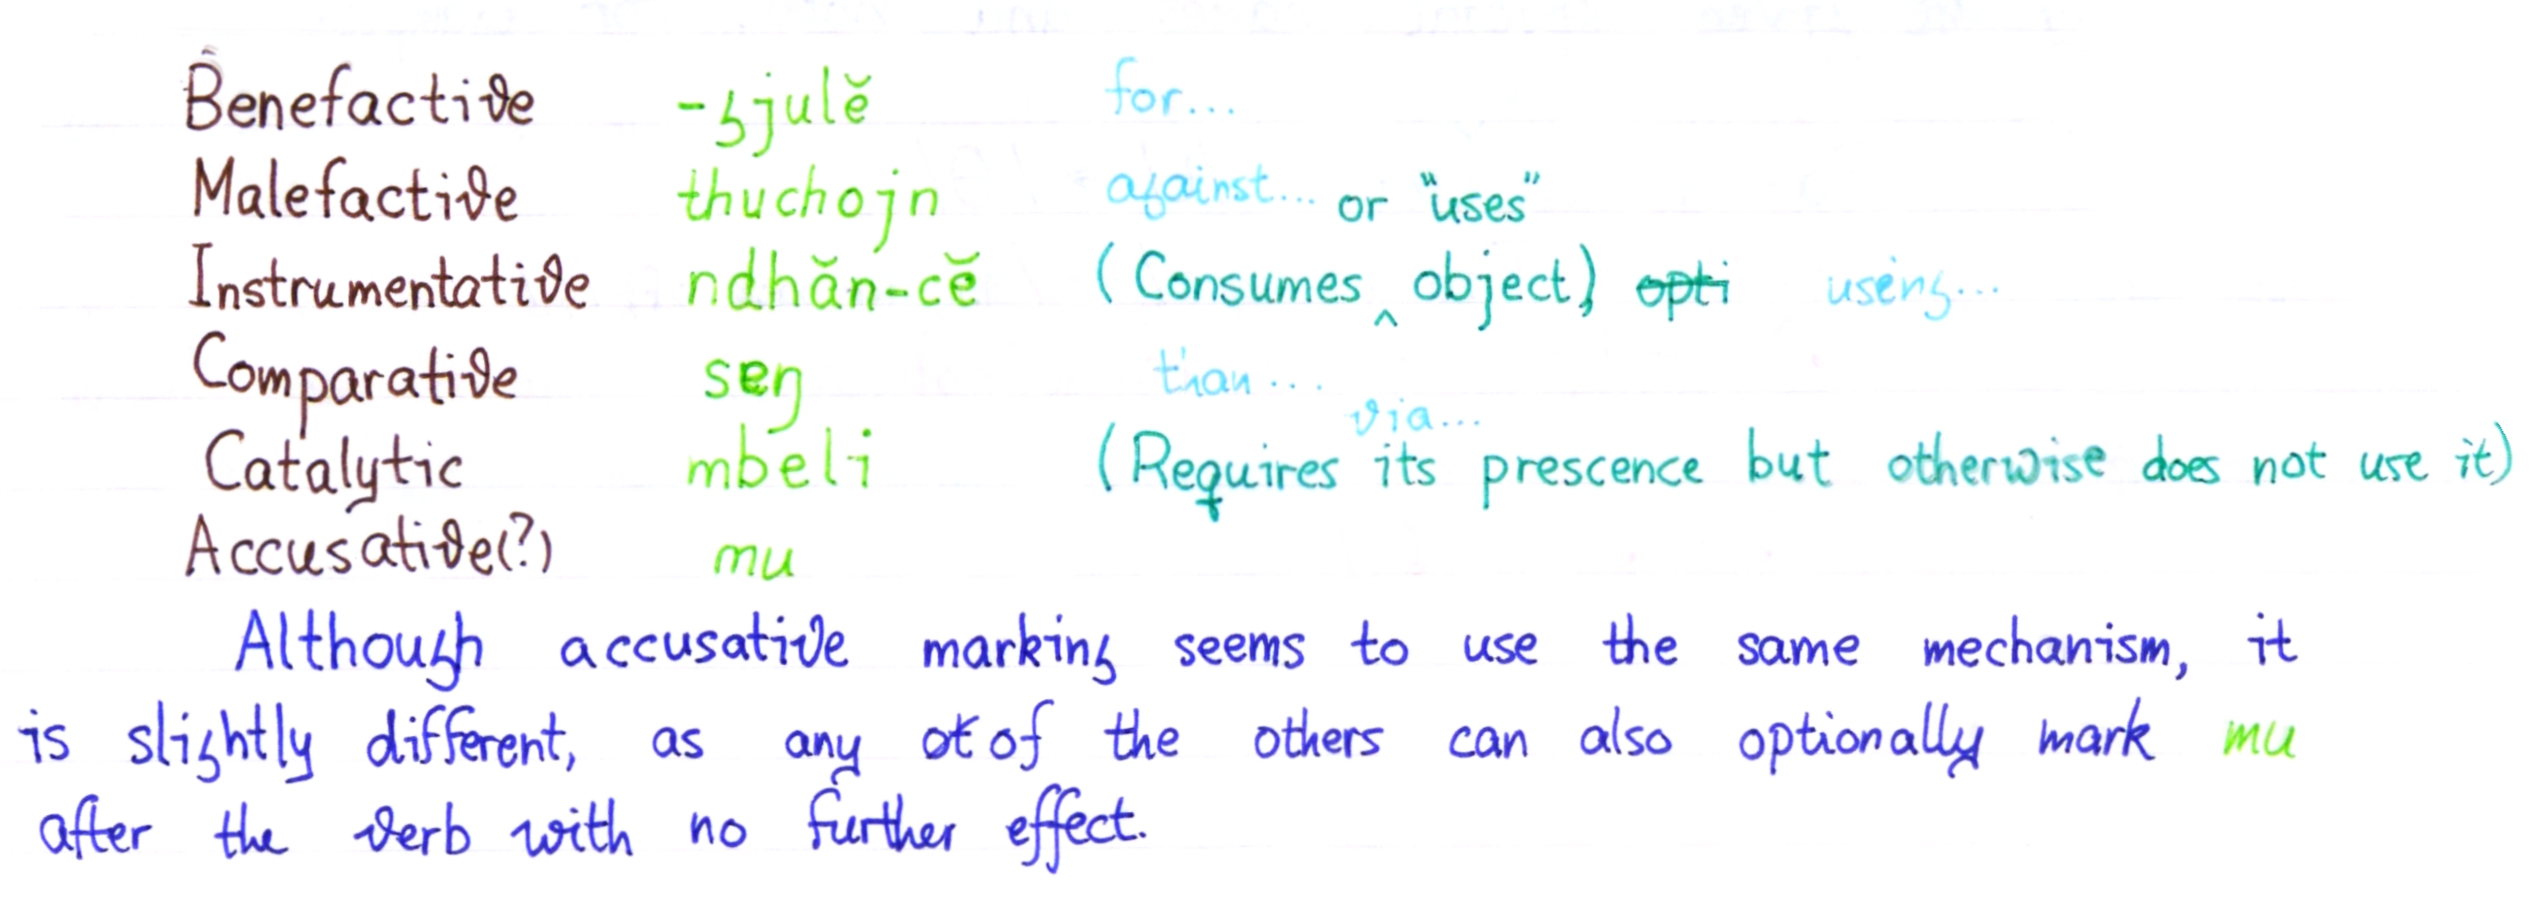 Benefactive -gjulĕ for...
Malefactive thuchojn against...
Instrumentative ndhăn-cĕ (Consumes or "uses" object) opti using...
Comparative seŋ than...
Catalytic mbeli via... (Requires its prescence but otherwise does not use it)
Accusative(?) mu
Although accusative marking seems to use the same mechanism, it
is slightly different, as any of the others can also optionally mark mu
after the verb with no further effect.